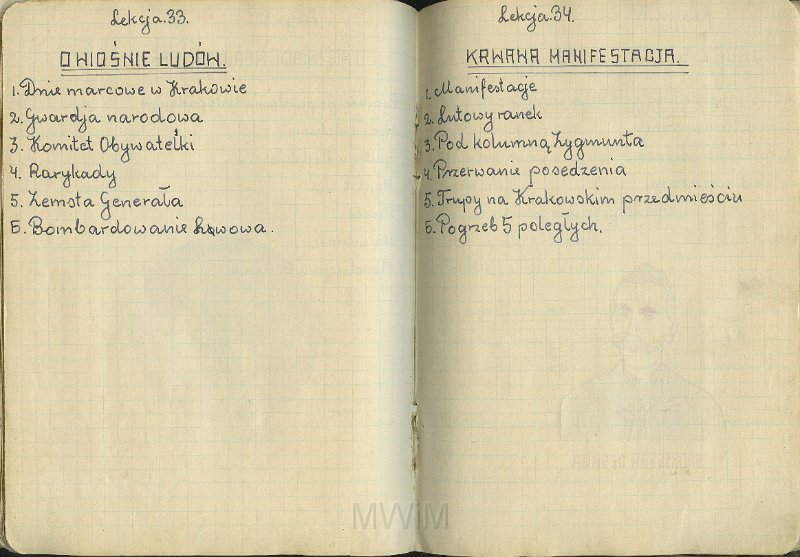 Lekcja.33.
O WIOŚNIE LUDÓW.
1. Dnie marcowe w Krakowie
2. Gwardja narodowa
3. Komitet Obywatelki
4. Barykady
5. Zemsta Generała
6. Bombardowanie Lwowa.
Lekcja.34.
KRWAWA MANIFESTACJA.
1. Manifestacje
2. Lutowy ranek
3. Pod kolumną Zygmunta
4. Przerwanie posedzenia
5. Trupy na Krakowskim przedmieściu
6. Pogrzeb 5 poległych.
MWiM